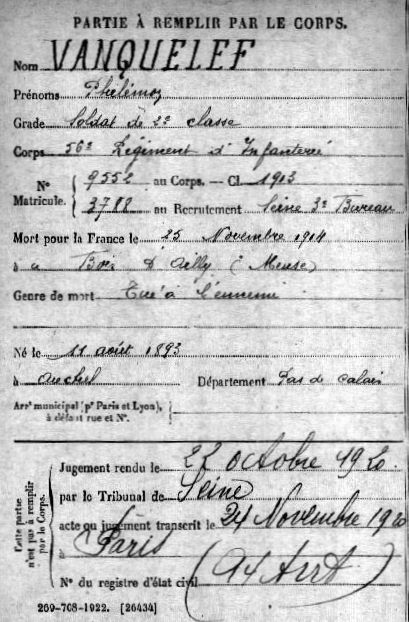 PARTIE À REMPLIR PAR LE CORPS.
Nom VANQUELEF
Prénoms
Grade Soldat de 2e classe
Corps 56e Régiment d'Infanterie
N° Matricule. { 9552 au Corps. — Cl. 1913
3788 au Recrutement Seine 3e Bureau
Mort pour la France le 25 Novembre 1914
à Bois d'Ailly (Meuse)
Genre de mort Tué à l'ennemi
Né le 11 août 1893
à Auchel Département Pas de Calais
Arr¹ municipal (pr Paris et Lyon),
à défaut rue et N°.
Cette partie n'est pas à remplir par le Corps.
Jugement rendu le 22 octobre 1920
par le Tribunal de Seine
acte ou jugement transcrit le 24 Novembre 1920
à Paris
N° du registre d'état civil
269-708-1922. [26434]